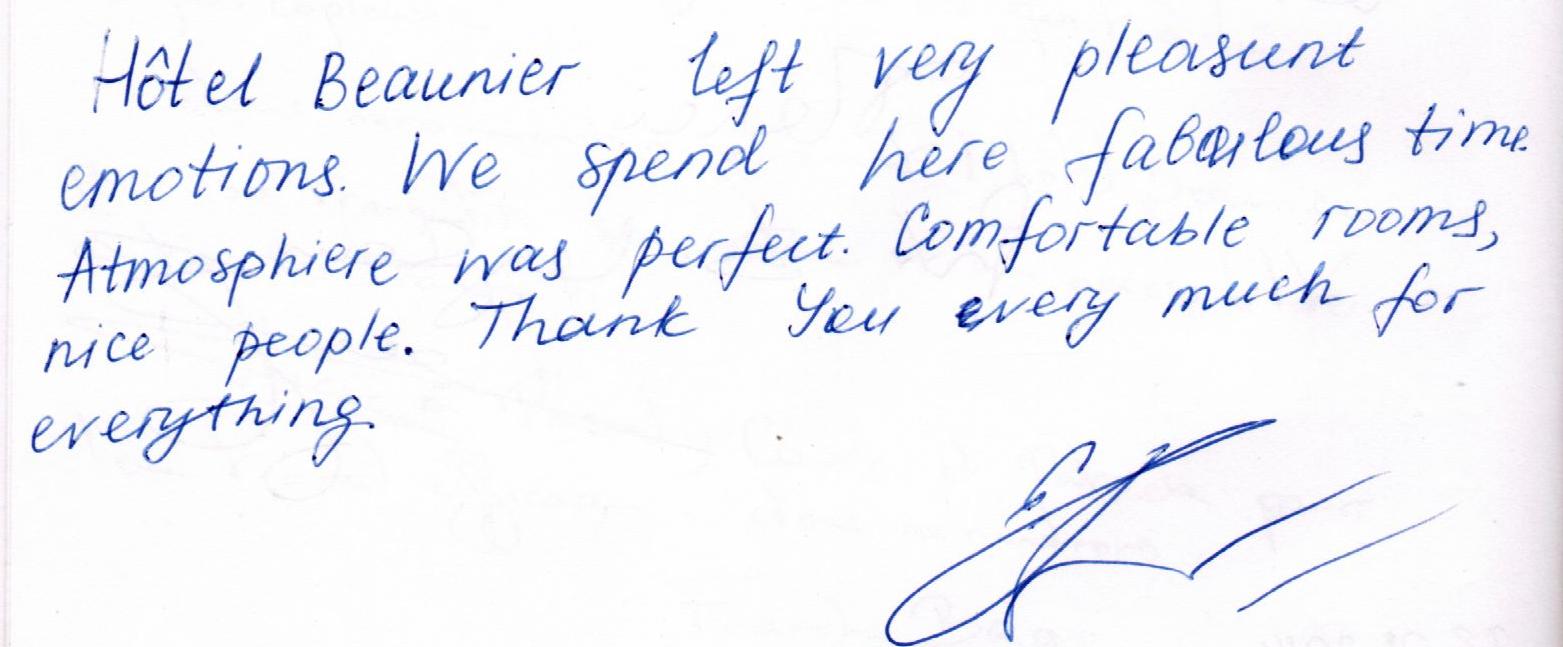 Hôtel Beaunier left very pleasunt
emotions. We spend here fabulous time.
Atmosphiere was perfect. Comfortable rooms,
nice people. Thank You very much for
everything.